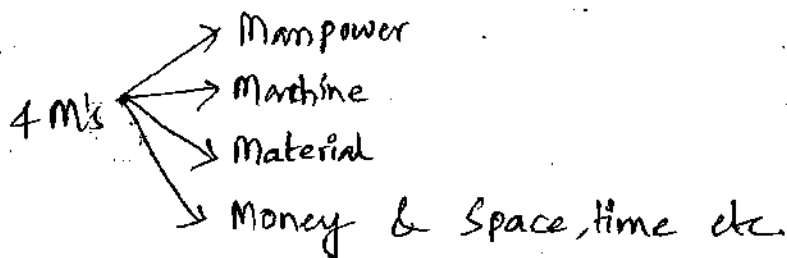 Manpower
Machine
4 M's
Material
Money & Space, time etc.